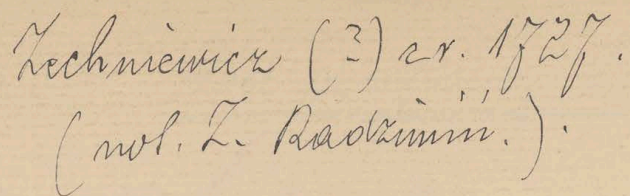 Zechniewicz (?) z r. 1727.
(not. Z. Radzimiń.).